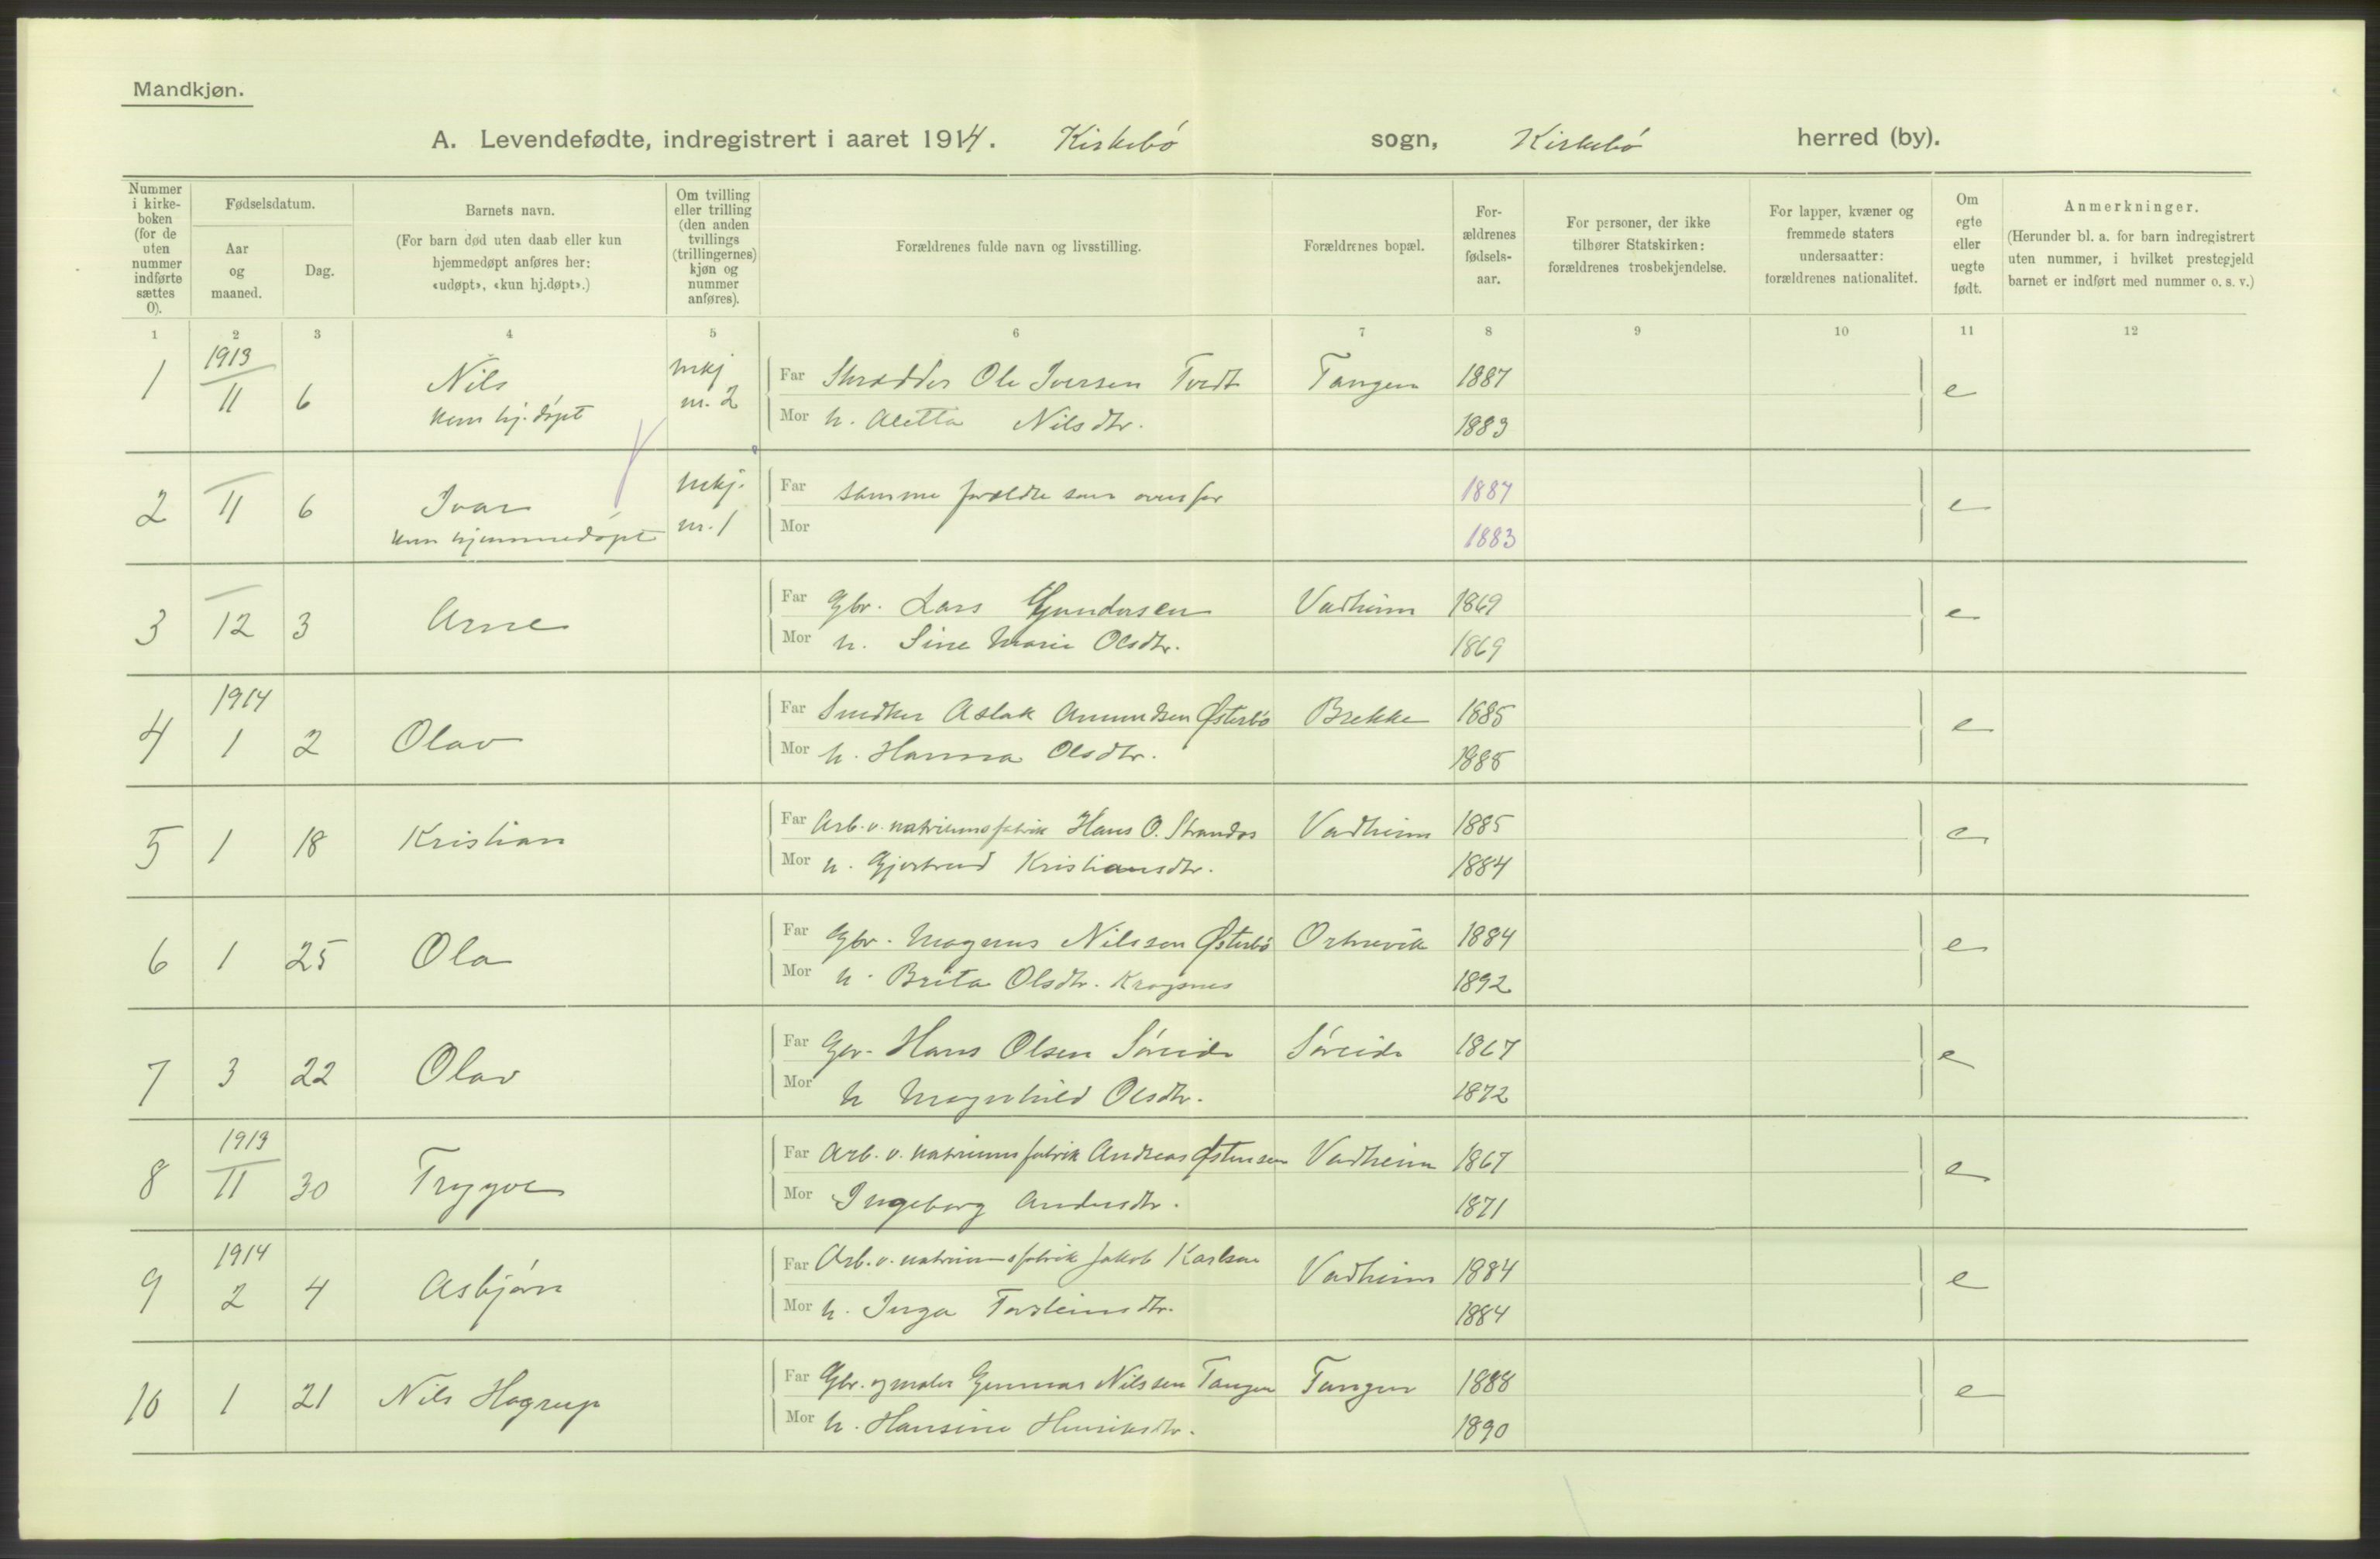 Mandkjøn.
A. Levendefødte, indregistrert i aaret 1914. Kirkebø sogn, Kirkebø herred (by).
Nummer i kirke-boken (for de uten nummer indførte sættes 0).
Fødselsdatum.
Aar og maaned.
Dag.
Barnets navn.
(For barn død uten daab eller kun hjemmedøpt anføres her: «udøpt», «kun hj.døpt».)
Om tvilling eller trilling (den anden tvillings (trillingernes) kjøn og nummer anføres).
Forældrenes fulde navn og livsstilling.
Forældrenes bopæl.
For-ældrenes fødsels-aar.
For personer, der ikke tilhører Statskirken: forældrenes trosbekjendelse.
For lapper, kvæner og fremmede staters undersaatter: forældrenes nationalitet.
Om egte eller uegte født.
Anmerkninger.
(Herunder bl. a. for barn indregistrert uten nummer, i hvilket prestegjeld barnet er indført med nummer o. s. v.)
1 2 3 4 5 6 7 8 9 10 11 12
1 1913 11 6 Nils mkj Far Skrædder Ole Iversen Tangen 1887 e
kun hj. døpt nr. 2 Mor h. Aletta Nilsdtr. 1883
2 11 6 Ivar mkj. Far samme forældre som ovenfor 1887 e
kun hjemmedøpt nr. 1 Mor 1883
3 12 3 Arne Far Gbr. Lars Gundersen Vadheim 1869 e
Mor h. Sine Marie Olsdtr. 1869
4 1914 1 2 Olav Far Snedker Aslak Amundsen Østerbø Brekke 1885 e
Mor h. Hanna Olsdtr. 1885
5 1 18 Kristian Far Arb. v. natriumsfabrik Hans O. Strandos Vadheim 1885 e
Mor h. Gjertrud Kristiansdtr. 1884
6 1 25 Ola Far Gbr. Magnus Nilssen Østerbø Ortnevik 1884 e
Mor h. Brita Olsdtr. 1892
7 3 22 Olav Far Gbr. Hans Olsen Søreide Søreide 1867 e
Mor h Magnhild Olsdtr. 1872
8 1913 11 30 Trygve Far Arb. v. natriumsfabrik Andreas Østensen Vadheim 1867 e
Mor Ingeborg Andersdtr. 1871
9 1914 2 4 Asbjørn Far Arb. v. natriumsfabrik Jakob Karlsen Vadheim 1884 e
Mor h. Inga Torsteinsdtr. 1884
10 1 21 Nils Hagrup Far Gbr. og maler Gunnar Nilssen Tangen Tangen 1888 e
Mor h. Hansine Henriksdtr. 1890